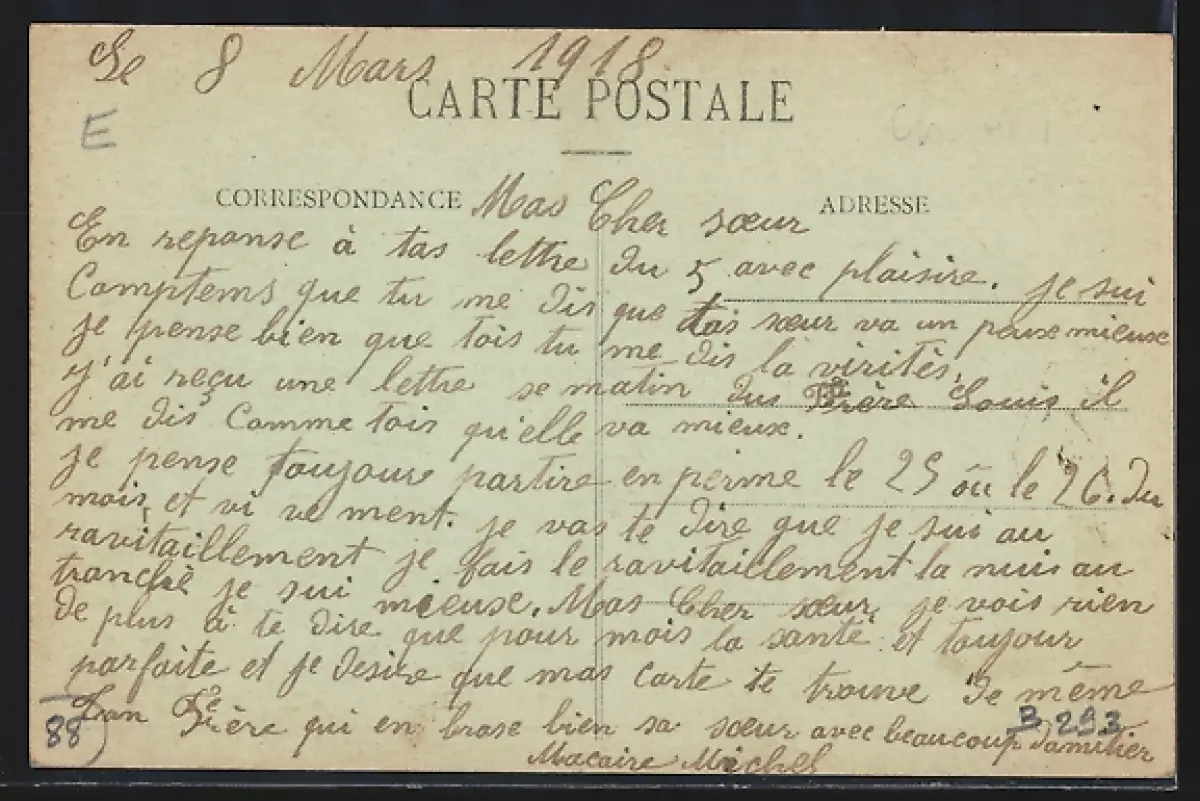 Le 8 Mars 1918
CARTE POSTALE
E
CORRESPONDANCE
ADRESSE
Mas Cher sœur
En reponse à tas lettre du 5 avec plaisire. je sui
Comptems que tu me dis que tas sœur va un peuse mieuse
je pense bien que tois tu me dis la viritès.
J'ai reçu une lettre se matin dus Frère Louis il
me dis Comme tois qu'elle va mieuse.
je pense toujour partire en perme le 25 ou le 26. du
mois, et vi ve ment. je vas te dire que je sui au
ravitaillement je fais le ravitaillement la nuis au
tranchè je sui mieuse. Mas Cher sœur, je vois rien
de plus à te dire que pour mois la santé et toujour
parfaite et je desire que mas carte te trouve de même
Ton Frère qui en brase bien sa sœur avec beaucoup damitier
Macaire Michel
88
B 293